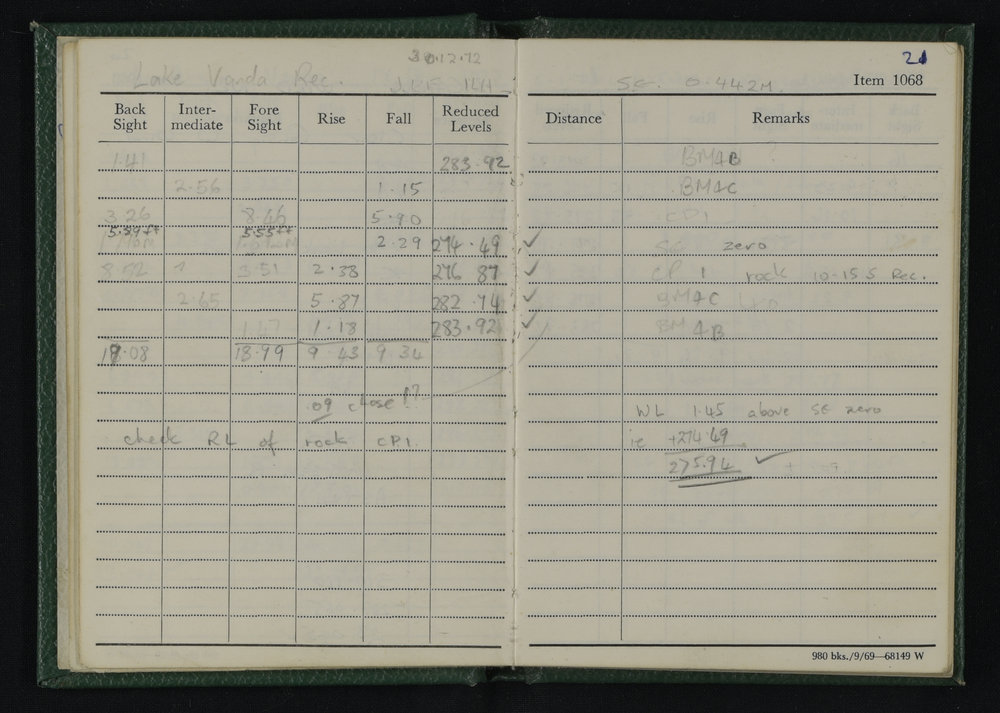 30.12.72
21
Lake Vanda Rec.
SE 0.442M
Item 1068
Back Sight Inter-mediate Fore Sight Rise Fall Reduced Levels Distance Remarks
1.41 283.92 BM4B
2.56 1.15 BM4C
3.26 8.46 5.90 CP1
5.59ft 5.55ft
2.29 274.49 ✓ SE zero
8.52 3.51 2.38 276 87 ✓ CP 1 rock 10-15 S Rec.
2.65 5.87 282.74 ✓ BM4C
1.47 1.18 283.92 ✓ BM 4B
19.08 18.99 9.43 9 34
.09 close !?
WL 1.45 above SE zero
check RL of rock CP1.
ie +274.49
275.94 ✓
980 bks./9/69—68149 W